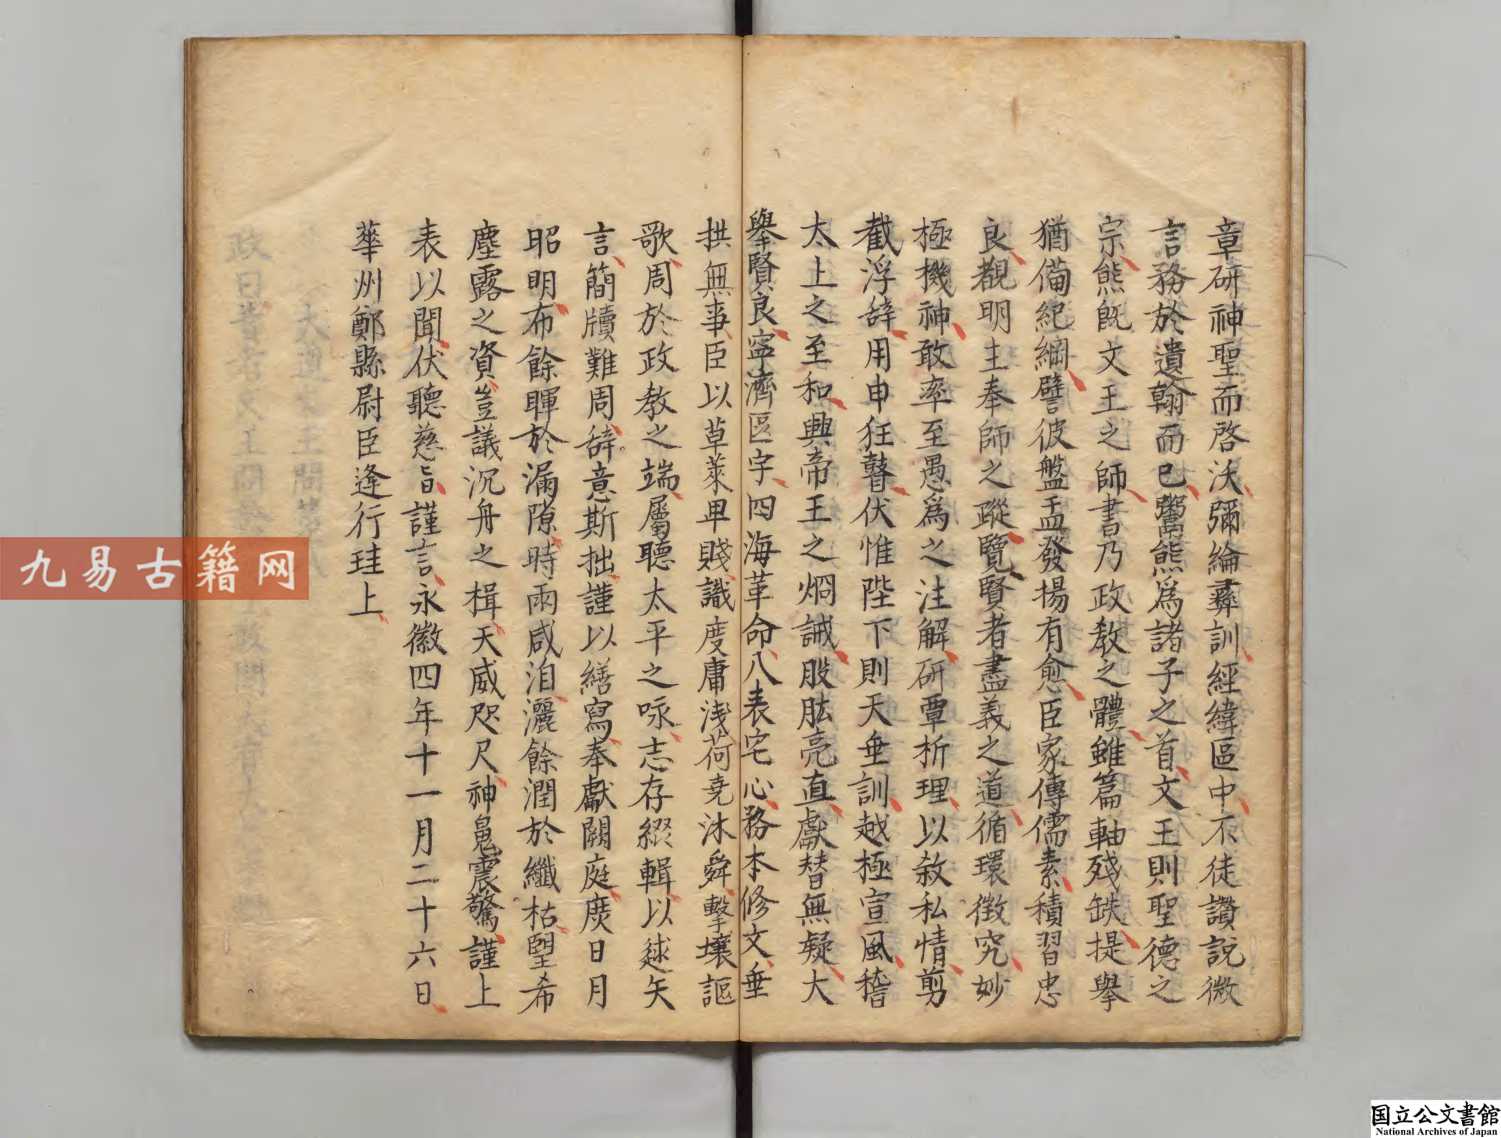 章研神聖而啓沃彌綸彝訓經緯區中不徒讚說微
言務於遺翰而已鬻熊爲諸子之首文王則聖德之
宗熊既文王之師書乃政教之體雖篇軸殘缺提舉
猶備紀綱譬彼盤盂發揚有愈臣家傳儒素積習忠
良覩明主奉師之蹤覽賢者盡義之道循環徴究妙
極機神敢率至愚爲之注解研覃析理以敘私情剪
截浮辝用申狂瞽伏惟陛下則天垂訓越極宣風稽
太上之至和興帝王之炯誡股肱亮直獻替無疑大
舉賢良寧濟區宇四海革命八表宅心務本修文垂
拱無事臣以草萊卑賤識度庸淺荷堯沐舜擊壤謳
歌周於政教之端屬聽太平之咏志存綴輯以逑矢
言簡牘難周辝意斯拙謹以繕寫奉獻闕庭庶日月
昭明布餘暉於漏隙時雨咸洎灑餘潤於纖枯堲希
塵露之資豈議沉舟之楫天威咫尺神鬼震驚謹上
表以聞伏聽慈旨謹言永徽四年十一月二十六日
華州鄭縣尉臣逄行珪上
九易古籍网
国立公文書館
National Archives of Japan